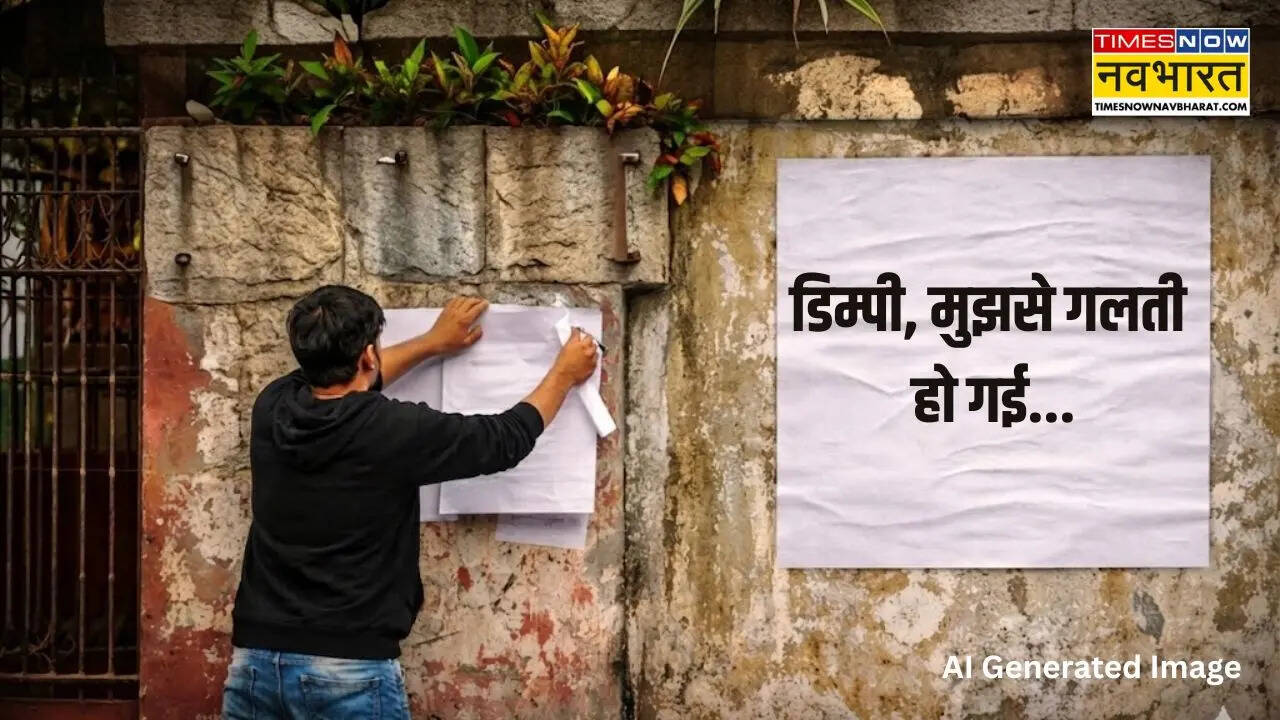 TIMES NOW
नवभारत
TIMESNOWNAVBHARAT.COM
डिम्पी, मुझसे गलती
हो गई...
AI Generated Image